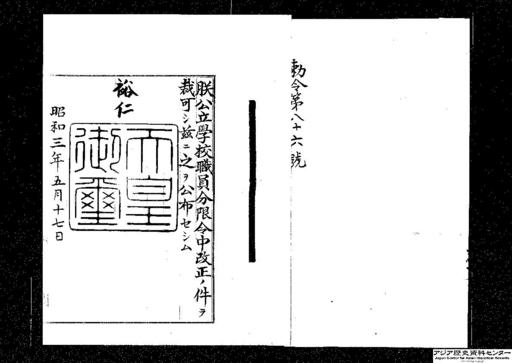 勅令第八十六號
朕公立學校職員分限令中改正ノ件ヲ
裁可シ茲ニ之ヲ公布セシム
裕仁
天皇
御璽
昭和三年五月十七日
アジア歴史資料センター
Japan Center for Asian Historical Records